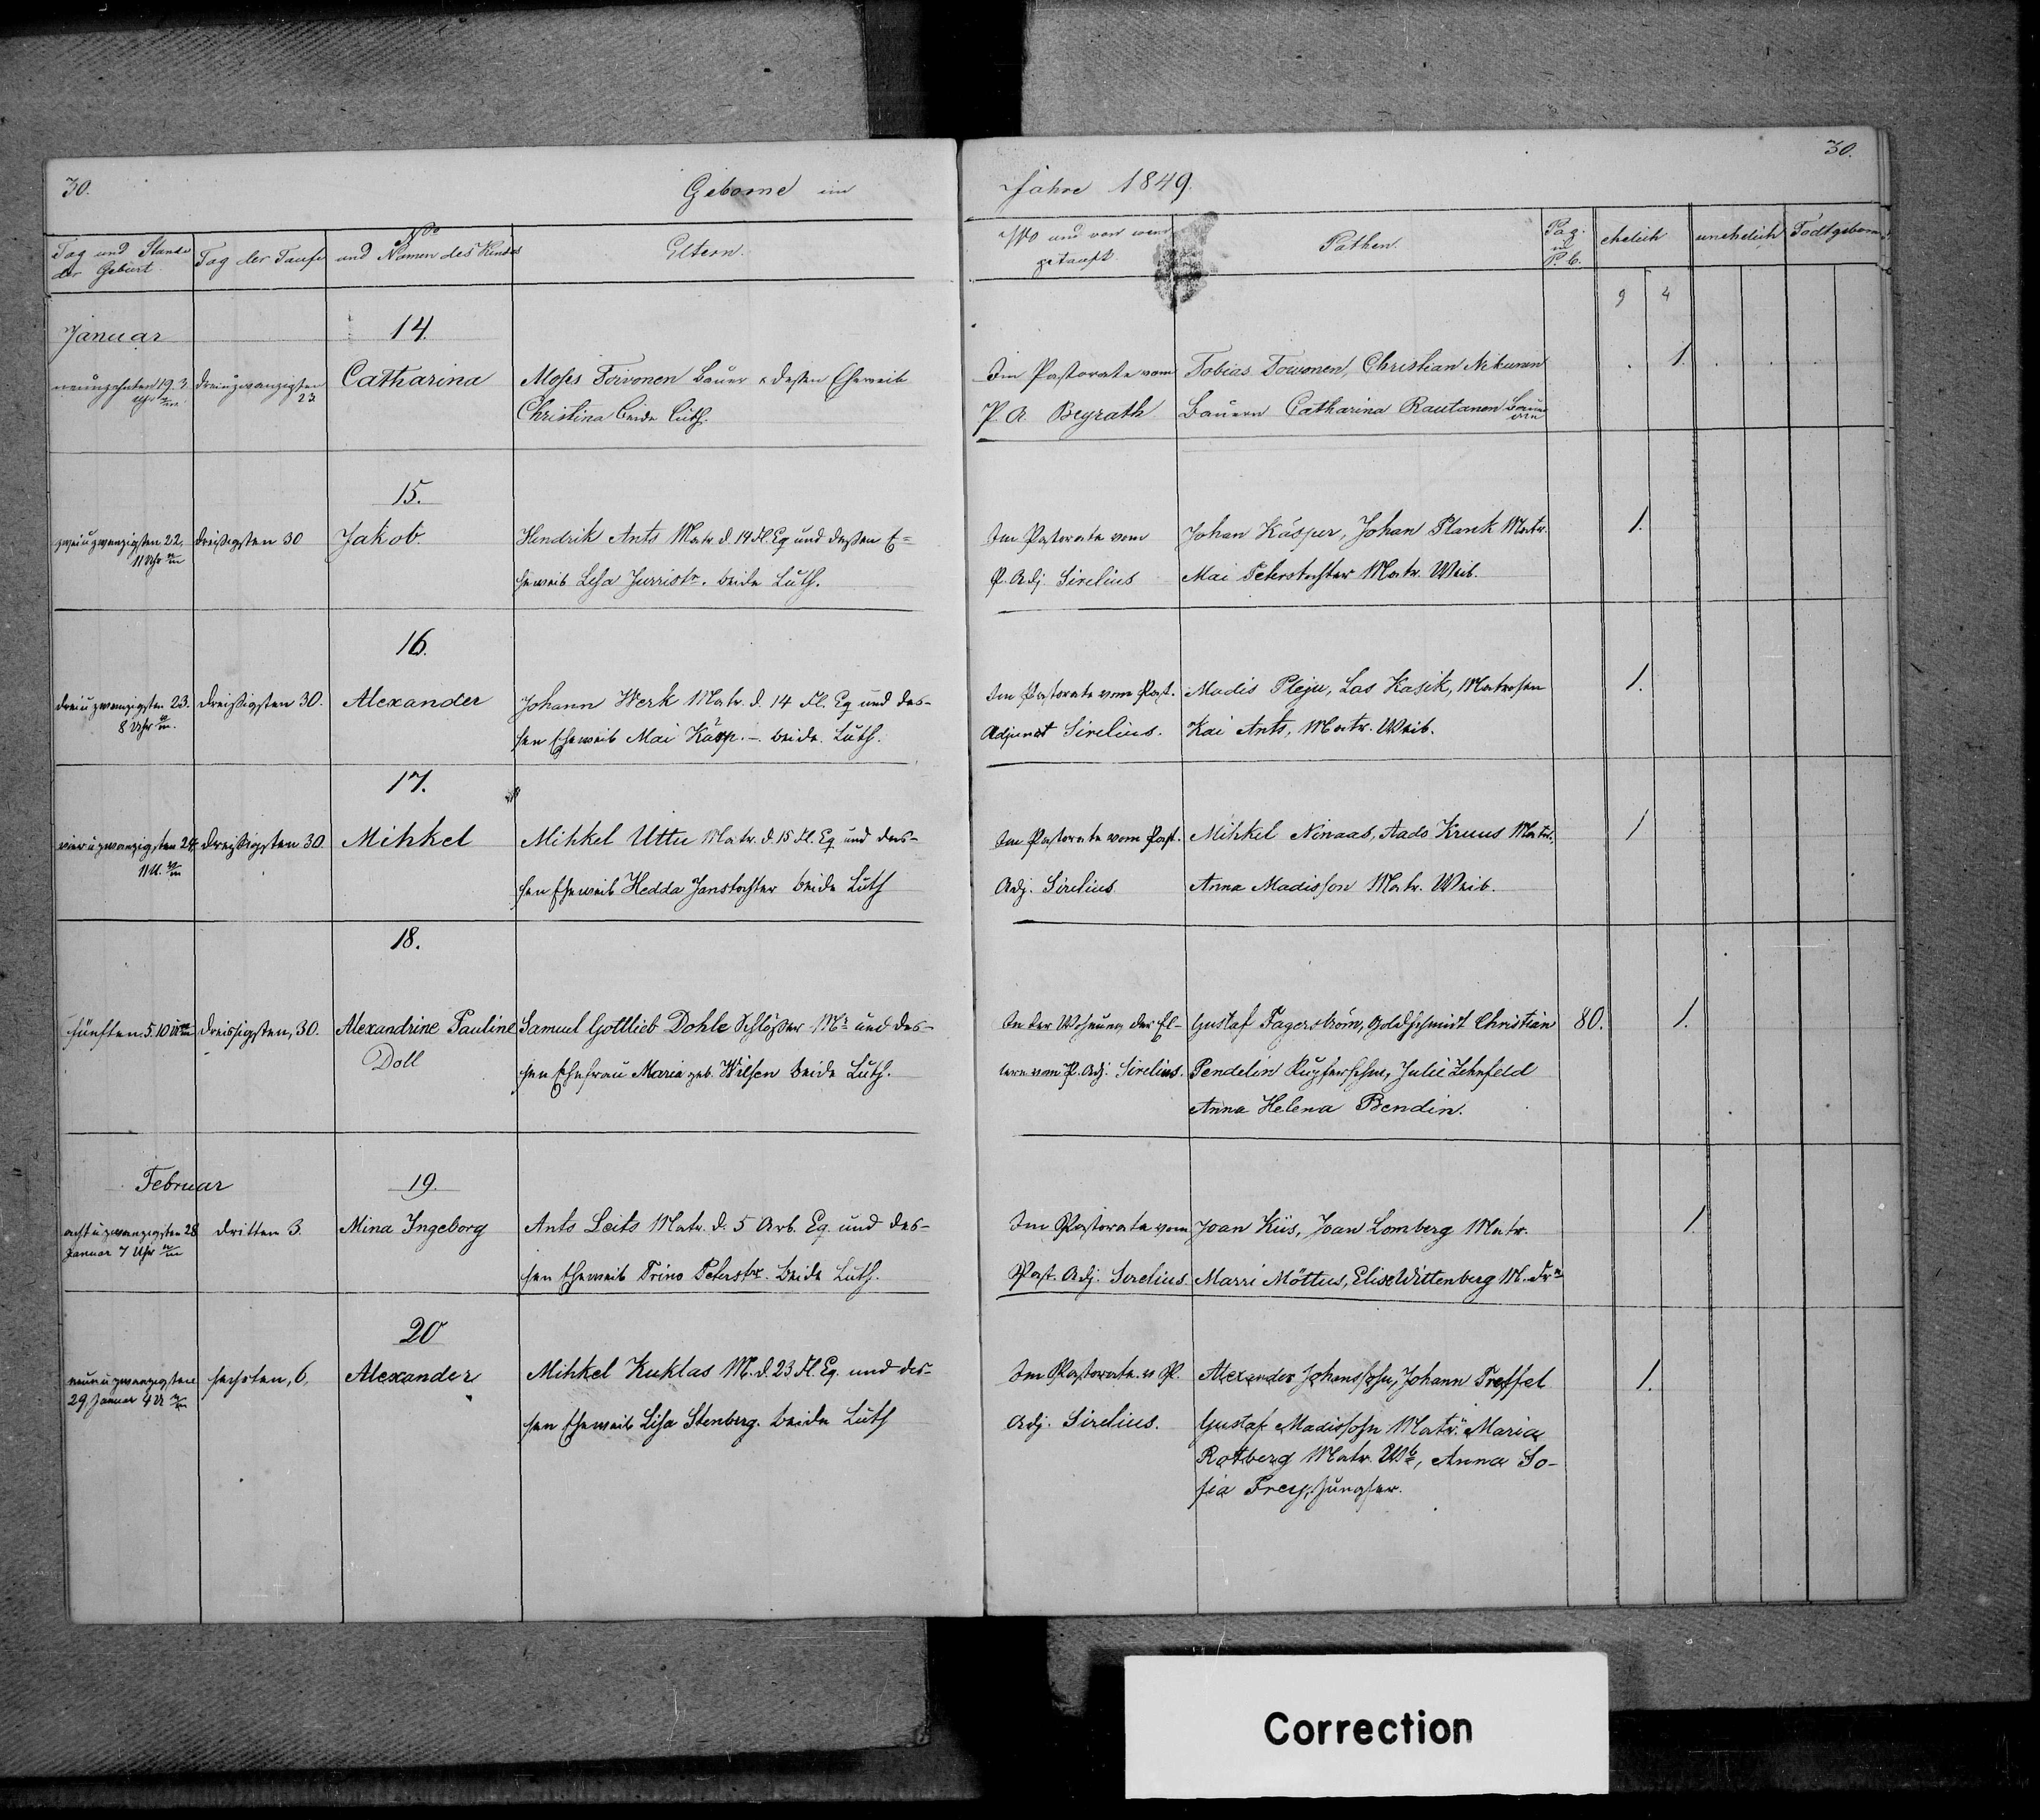 30.
Geborne im
Jahre 1849.
30.
Tag und Stunde der Geburt
Tag der Taufe
No und Namen des Kindes
Eltern.
Wo und von wem getauft
Pathen.
Pag. in P. b.
ehelich
unehelich
Todtgeborne
Januar
14.
neunzehnten 19. 3. Uhr
dreiuzwanzigsten 23.
Catharina
Moses Toivonen Bauer & dessen Eheweib
Christina beide luth.
Im Pastorate vom
P. A. Beyrath
Tobias Towonen, Christian Nikunen
Bauern Catharina Rautanen
1.
15.
zweiuzwanzigsten 22.
11 Uhr
dreißigsten 30
Jakob.
Hendrik Ants Matr d. 14 Fl. Eq und dessen E=
heweib Lisa Jurristr. beide Luth.
Im Pastorate vom
P. Adj Sirelius
Johan Käsper, Johan Plank Matr.
Mai Peterstochter Matr. Weib.
1.
16.
dreiuzwanzigsten 23.
8 Uhr
dreißigsten 30.
Alexander
Johann Werk Matr. d. 14 Fl. Eq und des-
sen Eheweib Mai Käsp. - beide Luth.
Im Pastorate vom Past.
Adjunct Sirelius.
Madis Pleju, Las Kasik, Matrosen
Kai Ants, Matr. Weib.
1.
17.
vieruzwanzigsten 24.
11 U.
dreißigsten 30
Mihkel
Mihkel Uttu Matr. d. 15 Fl. Eq und des-
sen Eheweib Hedda Janstochter beide Luth
Im Pastorate vom Past.
Adj. Sirelius
Mihkel Ninaas, Aado Kruus Matr.
Anna Madisson Matr. Weib.
1
18.
fünften 5. 10
dreissigsten, 30.
Alexandrine Pauline
Doll
Samuel Gottlieb Dohle Schlößer Mr und des-
sen Ehefrau Maria geb. Wilsen beide Luth.
In der Wohnung der El-
tern vom P. Adj. Sirelius.
Gustaf Fagerström, Goldschmidt Christian
Pendelin Kupferschm, Julie Zehnfeld
Anna Helena Bendin.
80.
1.
Februar
19.
achtuzwanzigsten 28
Januar 7 Uhr
dritten 3.
Mina Ingeborg
Ants Leits Matr. d. 5 Arb. Eq und des-
sen Eheweib Trino Peterstr. beide Luth.
Im Pastorate vom
Past. Adj. Sirelius
Joan Kiis, Joan Lomberg Matr.
Marri Möttus, Elise Wittenberg
1.
20
neunuzwanzigsten
29 Januar 4 U
sechsten, 6.
Alexander
Mihkel Kuklas M. d. 23 Fl. Eq. und des-
sen Eheweib Lisa Stenberg. beide Luth
Im Pastorate v P.
Adj. Sirelius.
Alexander Johanssohn, Johann Treffel
Gustaf Madissohn Matr. Maria
Rotberg Matr. Wb, Anna So-
fia Frey, Jungfer.
1.
Correction